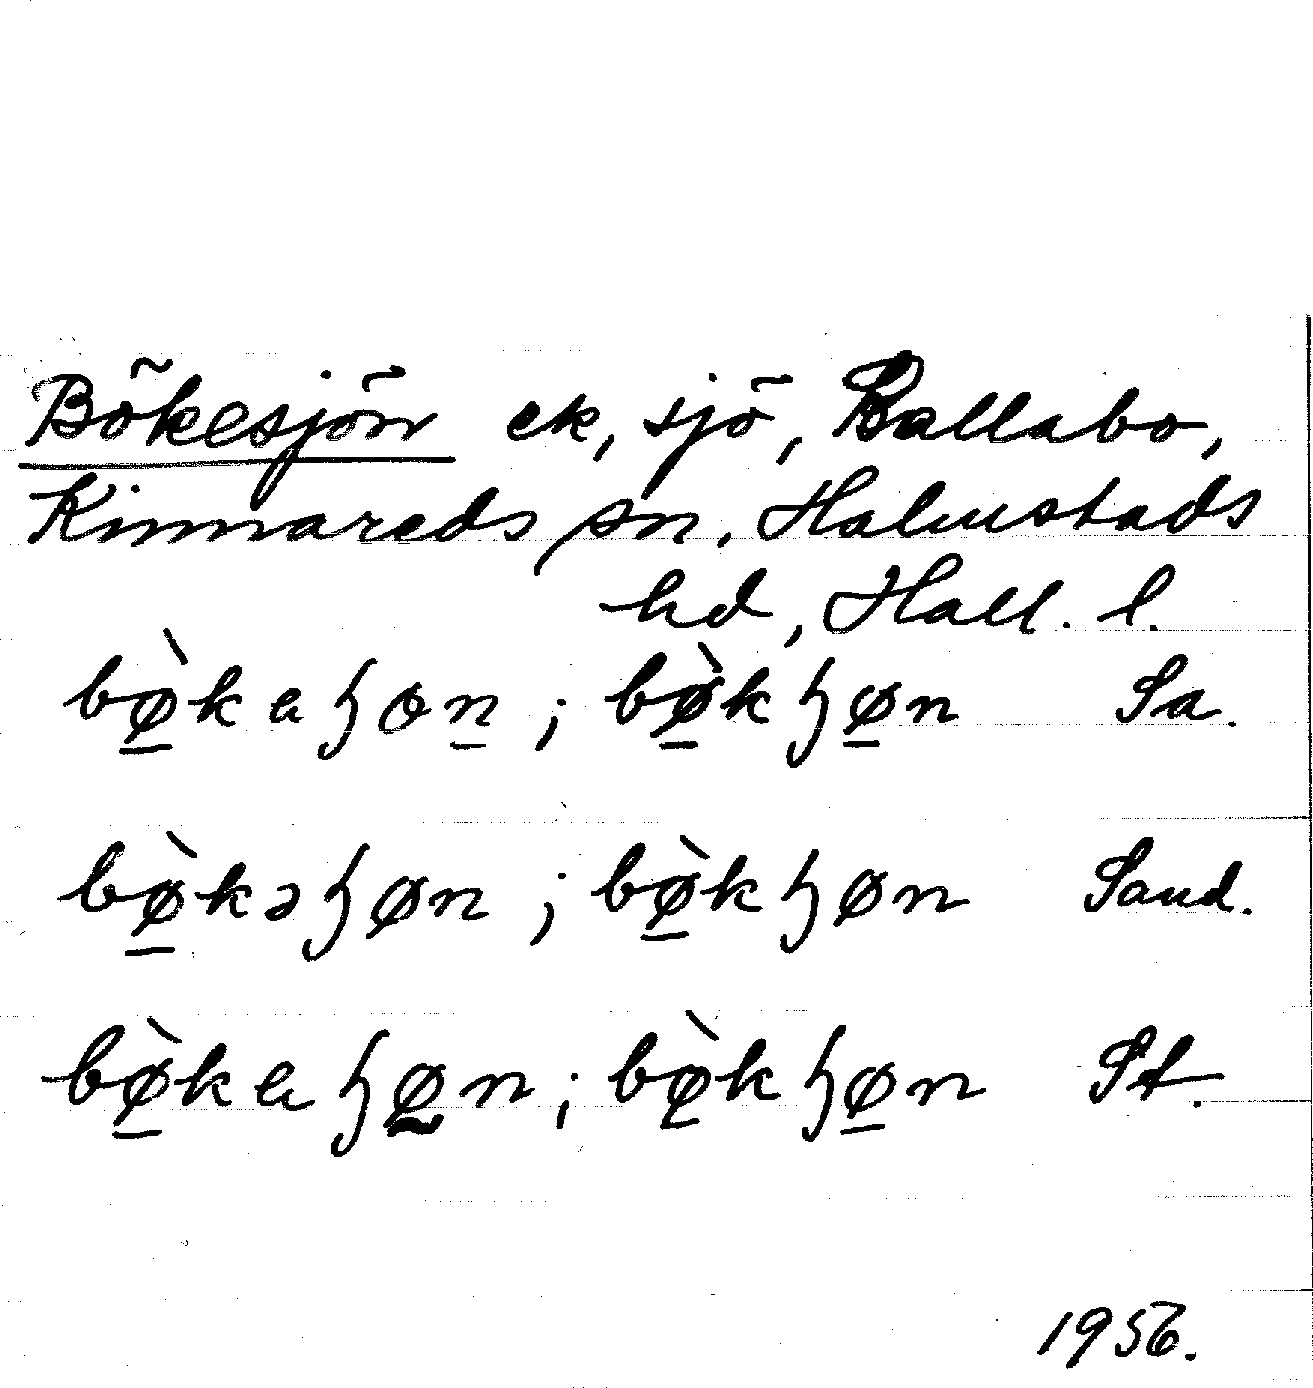 Bökesjön ek, sjö, Ballabo,
Kinnareds sn. Halmstads
hd, Hall. l.
bø̱̀kaɧoṉ ; bø̱̀kɧø̱n Sa.
bø̱̀kəɧøn ; bø̱̀kɧøn Sand.
bø̱̀kaɧø̰n ; bø̱̀kɧø̱n St.
1956.